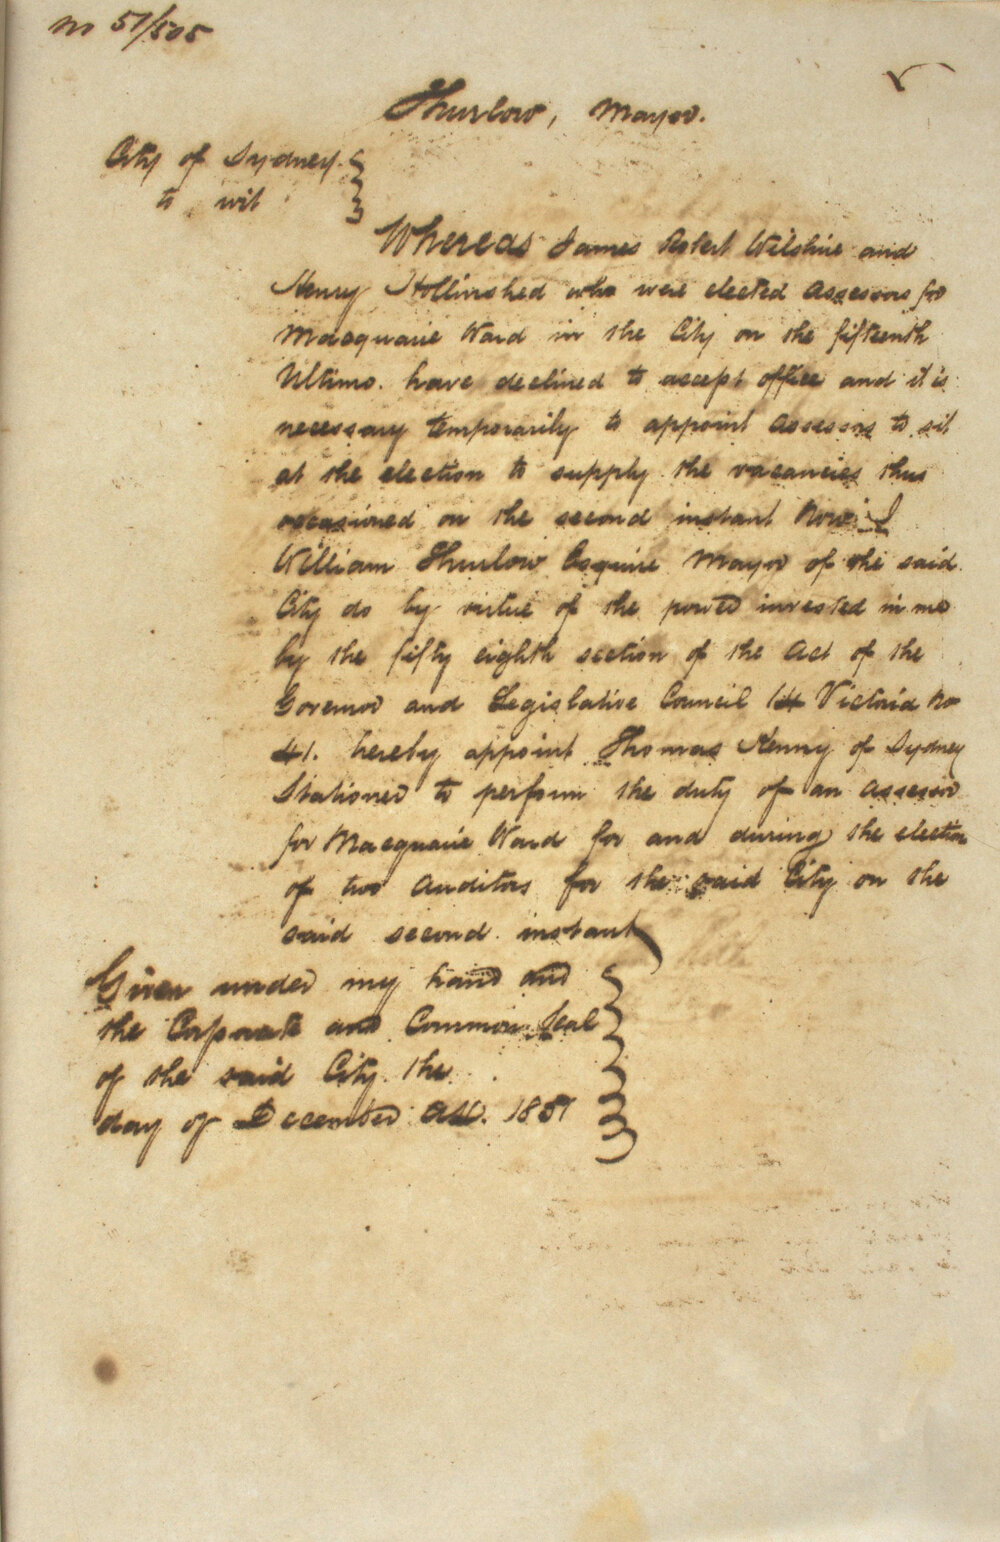 No 51/505
Thurlow, Mayor.
City of Sydney
to wit
Whereas James Robert Wilshire and
Henry Hollinshed who were elected Assessors for
Macquarie Ward in the City on the fifteenth
Ultimo. have declined to accept office and it is
necessary temporarily to appoint Assessors to sit
at the election to supply the vacancies thus
occasioned on the second instant Now I
William Thurlow Esquire Mayor of the said
City do by virtue of the power invested in me
by the fifty eighth section of the Act of the
Governor and Legislative Council 14 Victoria No
41. hereby appoint Thomas Kenny of Sydney
Stationer to perform the duty of an Assessor
for Macquarie Ward for and during the election
of two Auditors for the said City on the
said second instant
Given under my hand and
the Corporate and Common Seal
of the said City the
day of December AD. 1851